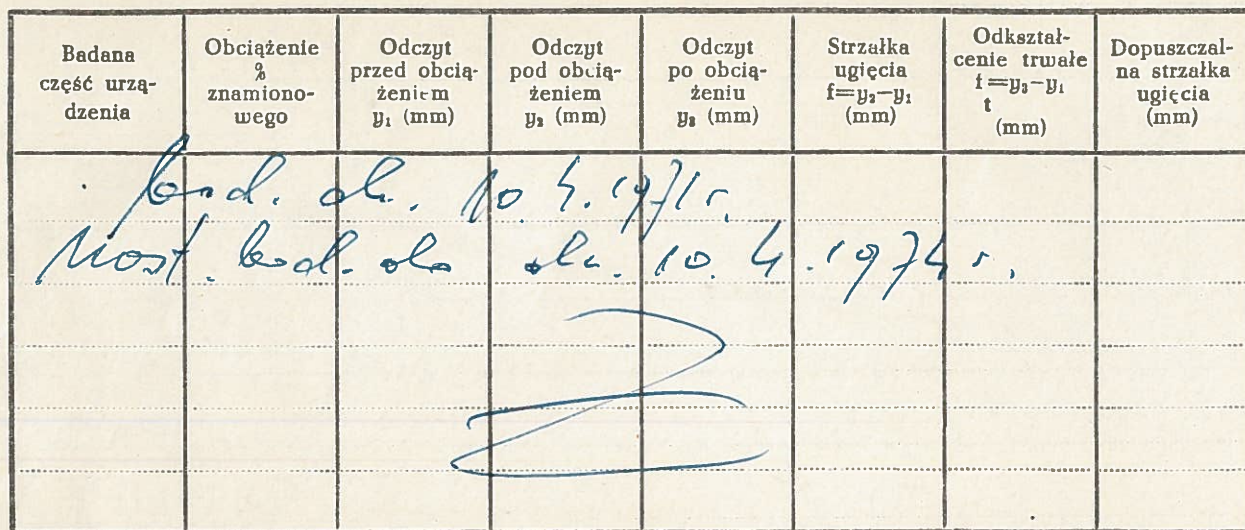 Badana część urzą-dzenia
Obciążenie % znamiono-wego
Odczyt przed obcią-żeniem y₁ (mm)
Odczyt pod obcią-żeniem y₂ (mm)
Odczyt po obcią-żeniu y₃ (mm)
Strzałka ugięcia f=y₂−y₁ (mm)
Odkształ-cenie trwałe f t=y₃−y₁ (mm)
Dopuszczal-na strzałka ugięcia (mm)
bad. dn. 10. 4. 1971 r.
Nast. bad. do dn. 10. 4. 1974 r.